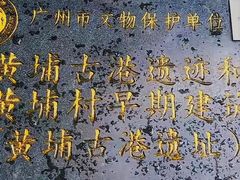 广州市文物保护单位
黄埔古港遗迹和
黄埔村早期建筑
(黄埔古港遗址)